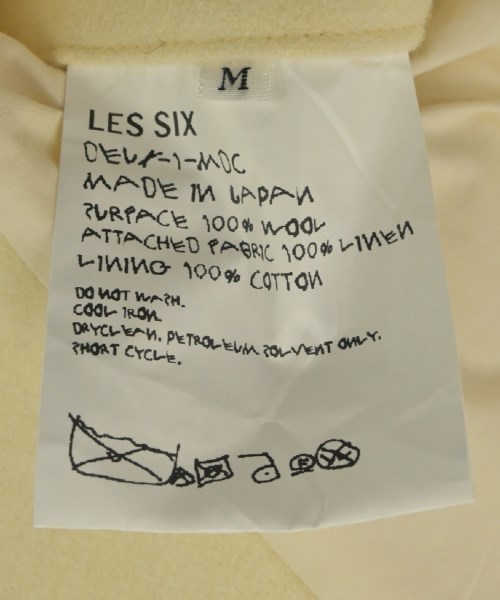 M
LES SIX
DEUX-1-MOC
MADE IN JAPAN
SURFACE 100% WOOL
ATTACHED FABRIC 100% LINEN
LINING 100% COTTON
DO NOT WASH.
COOL IRON.
DRYCLEAN. PETROLEUM SOLVENT ONLY.
SHORT CYCLE.